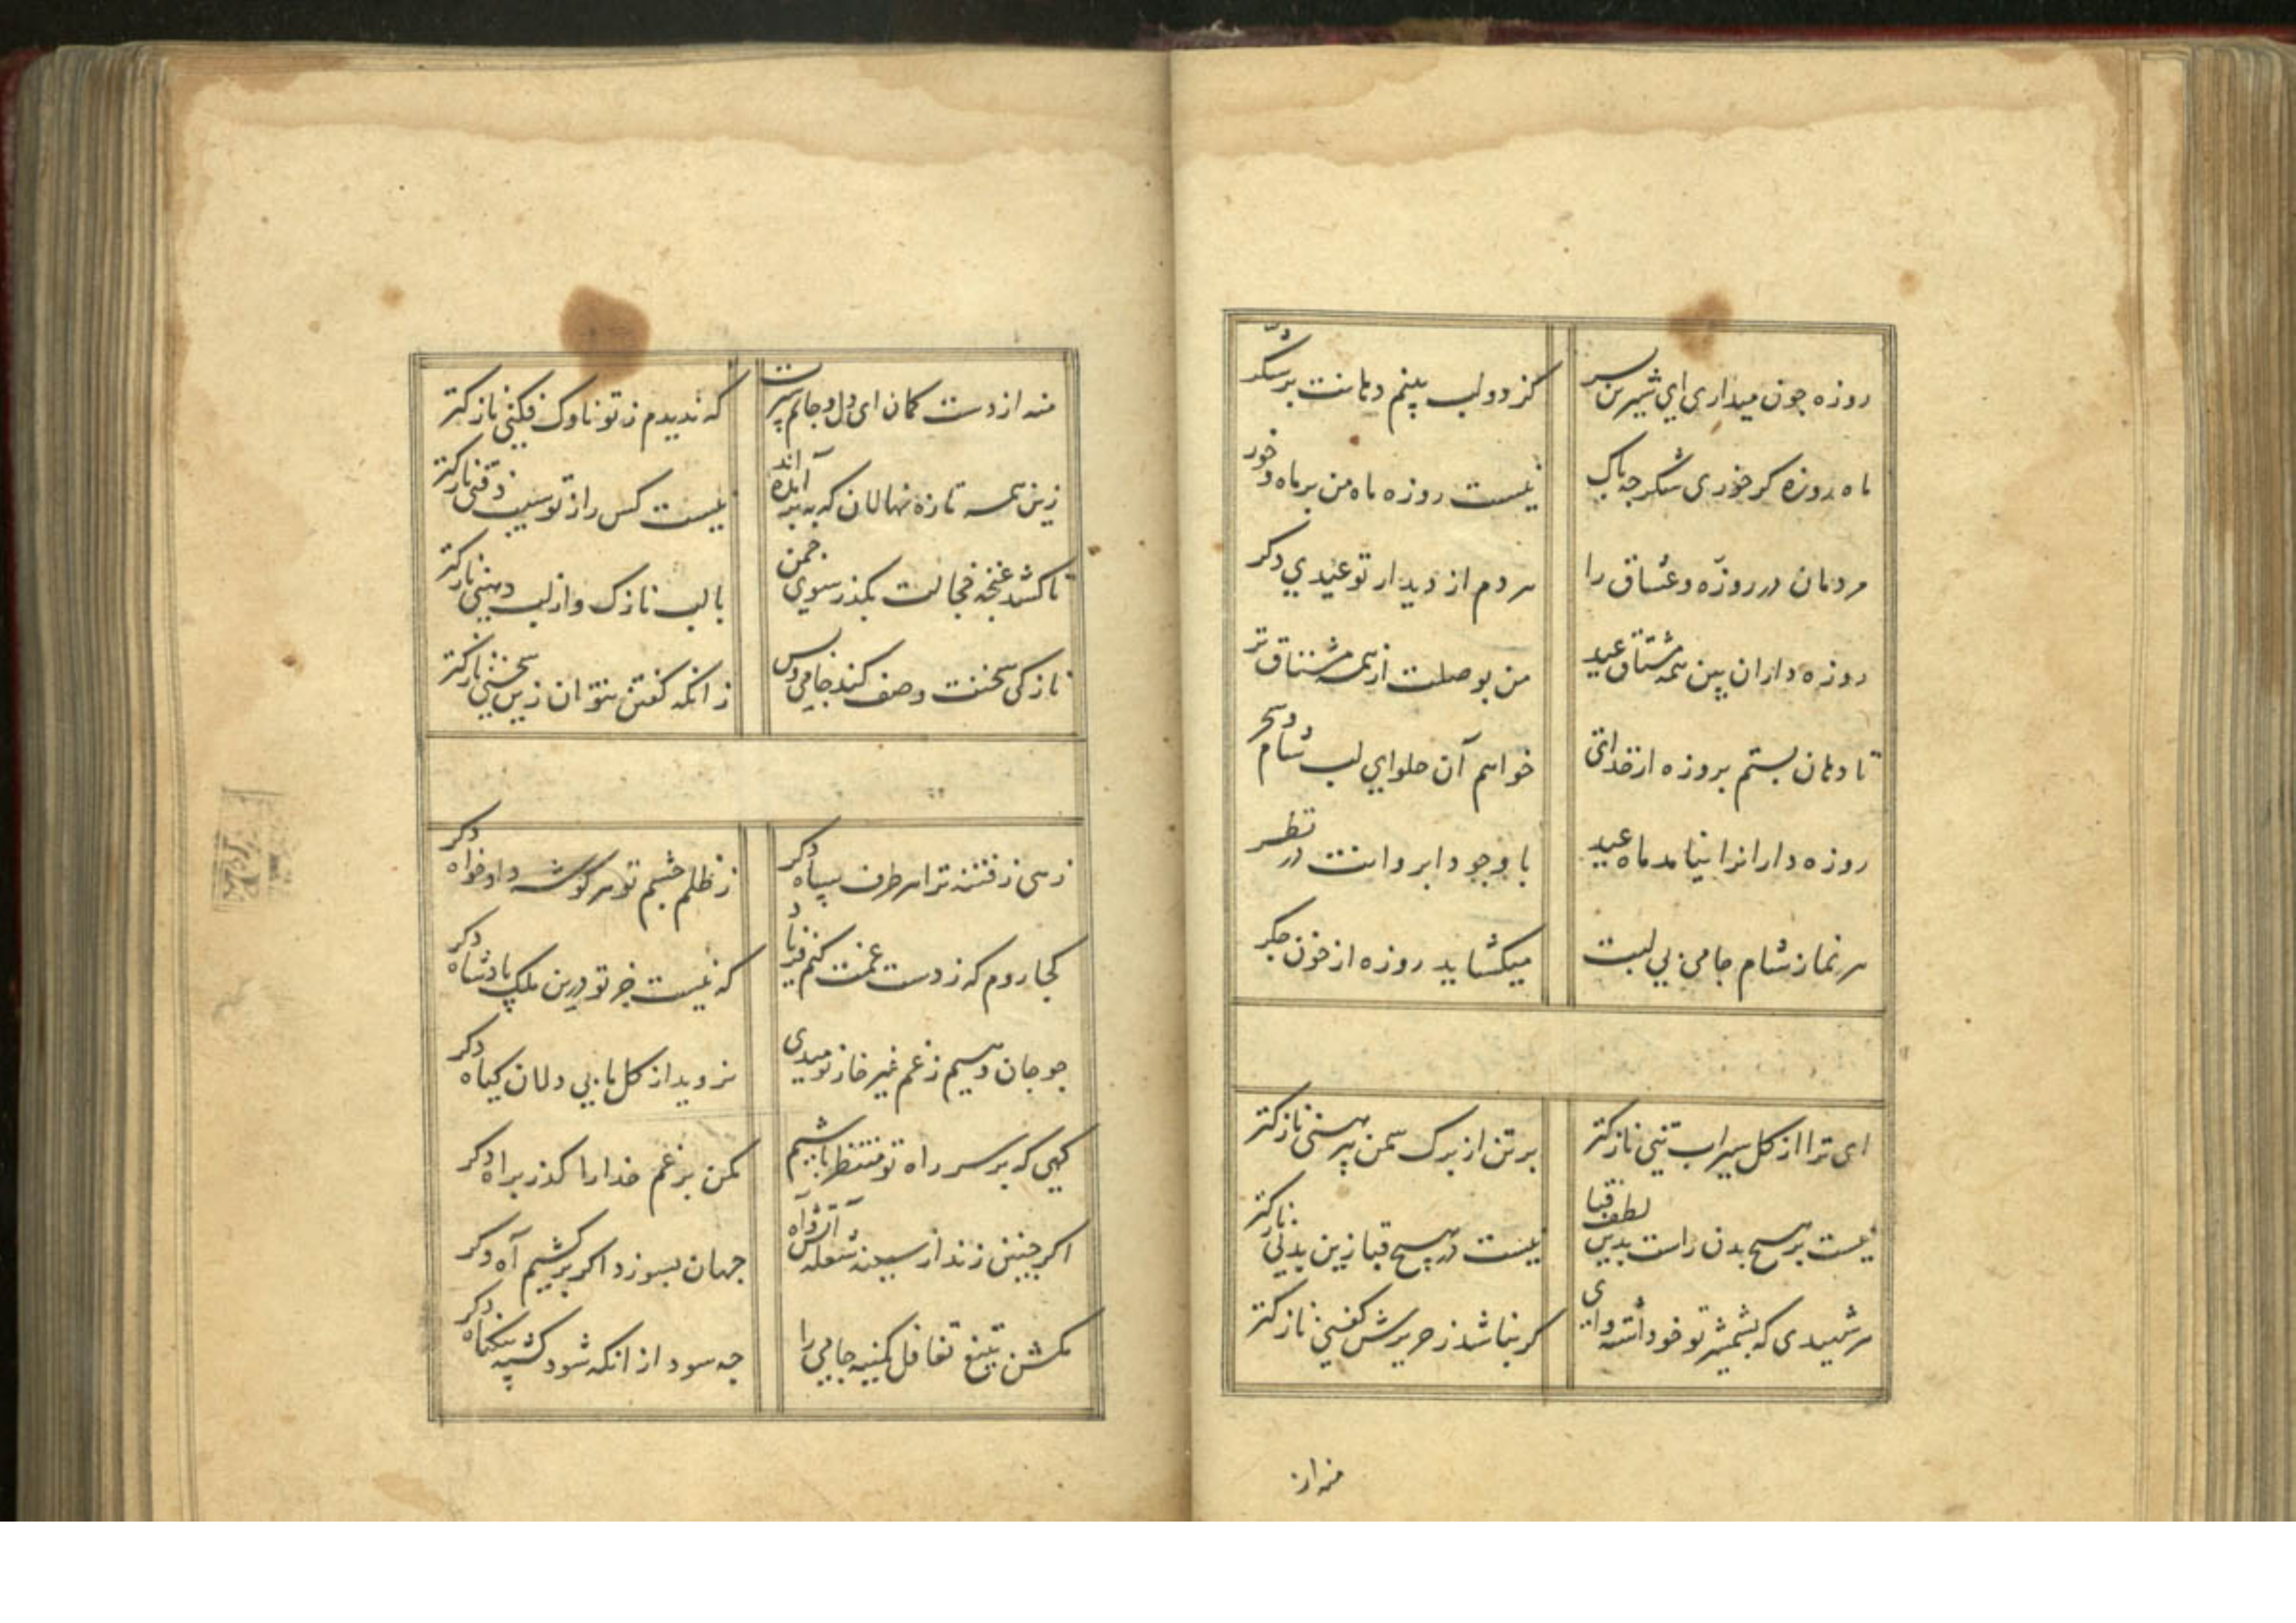 روزه چون میداری ای شیرین پسر
کز دو لب پینم دهانت پر شکر
ماه روزه کر خوری شکر چه باک
نیست روزه ماه من بر ماه و خور
مردمان در روزه و عشاق را
هر دم از دیدار تو عیدی دکر
روزه داران پین همه مشتاق عید
من بوصلت از همه مشتاق تر
تا دهان بستم بروزه از خدای
خواهم آن حلوای لب شام و سحر
روزه دارانرا نیامد ماه عید
با وجود ابروانت در نظر
هر نماز شام جامی بی لبت
میکشاید روزه از خون جکر
ای ترا از کل سیراب تنی نازکتر
بر تن از برک سمن پیرهنی نازکتر
نیست بر هیچ بدن راست بدین لطف قبا
نیست در هیچ قبا زین بدنی نازکتر
هر شهیدی که بشمشیر تو خود آشته وای
کر نباشد ز حریرش کفنی نازکتر
منه از
منه از دست کمان ای دل و جانم سپرت
که ندیدم ز تو ناوک فکنی نازکتر
زین همه تازه نهالان که ببر آمده اند
نیست کس را ز تو سیب ذقنی نازکتر
تا کشد غنچه خجالت بکذر سوی چمن
با لب نازک و از لب دهنی نازکتر
نازکی سخنت وصف کند جامی و بس
زانکه کفتن نتوان زین سخنی نازکتر
زهی ز فتنه ترا هر طرف سپاه دکر
ز ظلم چشم تو هر کوشه دادخواه دکر
کجا روم که ز دست غمت کنم فریاد
که نیست جز تو درین ملک پادشاه دکر
جو جان دهیم ز غم غیر خار نومیدی
نروید از کل ما بی دلان کیاه دکر
کهی که بر سر راه تو منتظر باشیم
مکن برغم خدا را کذر براه دکر
اکر چنین زند از سینه شعله آتش و آه
جهان بسوزد اکر برکشیم آه دکر
مکش بتیغ تغافل کمینه جامی را
چه سود از انکه شود کشته بیکناه دکر